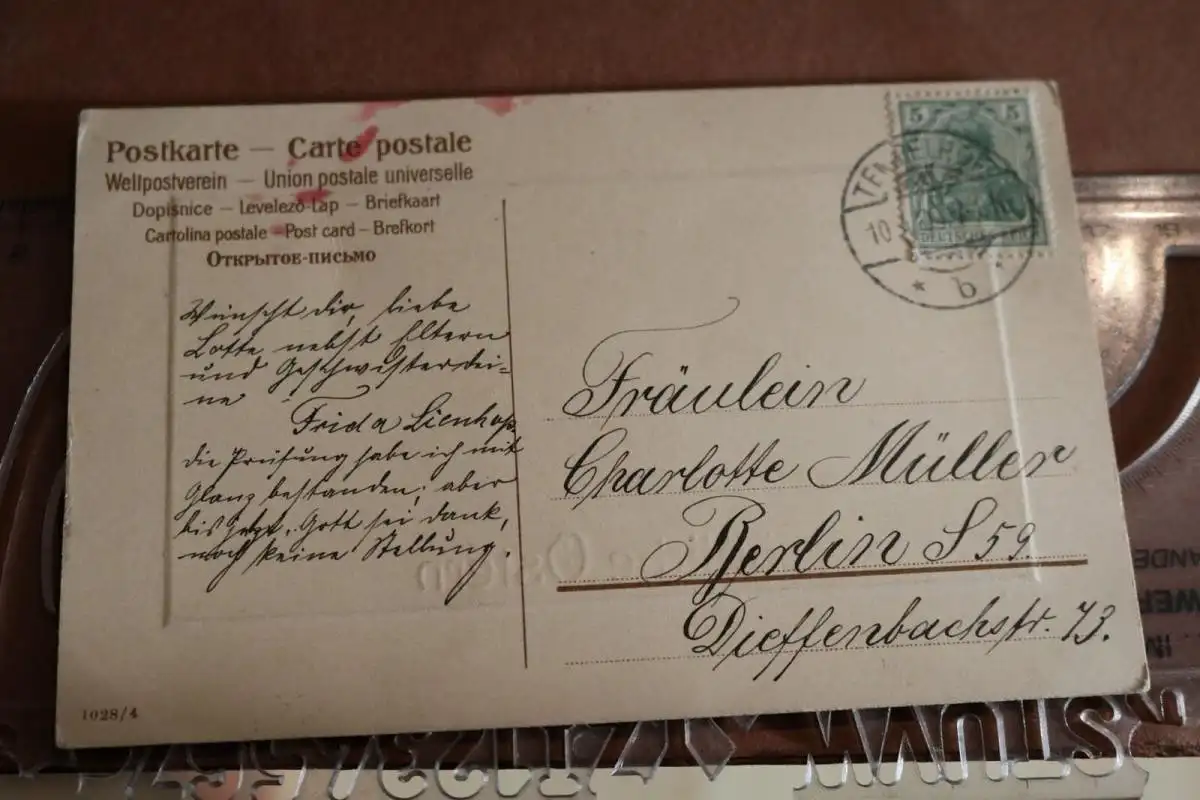 Postkarte — Carte postale
Weltpostverein — Union postale universelle
Dopisnice — Levelező-Lap — Briefkaart
Cartolina postale — Post card — Brefkort
Открытое-письмо
5 5
DEUTSCHES
TEMPELHOF
10
* b *
Wünscht dir, liebe
Lotte nebst Eltern
und Geschwister dei=
ne
Frida
die Prüfung habe ich mit
Glanz bestanden; aber
bis jetzt, Gott sei dank,
noch keine Stellung.
Fräulein
Charlotte Müller
Berlin S 59.
Dieffenbachstr. 73.
Ostern
1028/4